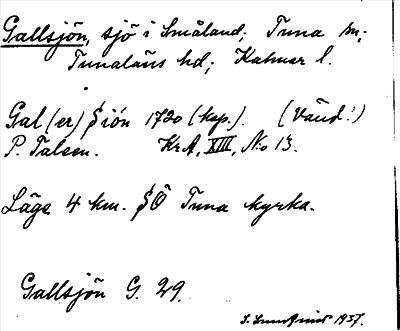 Gallsjön, sjö i Småland; Tuna sn;
Tunaläns hd; Kalmar l.
Gal(er) Siön 1720 (kop.). (Vänd!)
P. Talem. KrA, XIII, No 13.
Läge 4 km. SÖ Tuna kyrka.
Gallsjön G. 29.
1937.